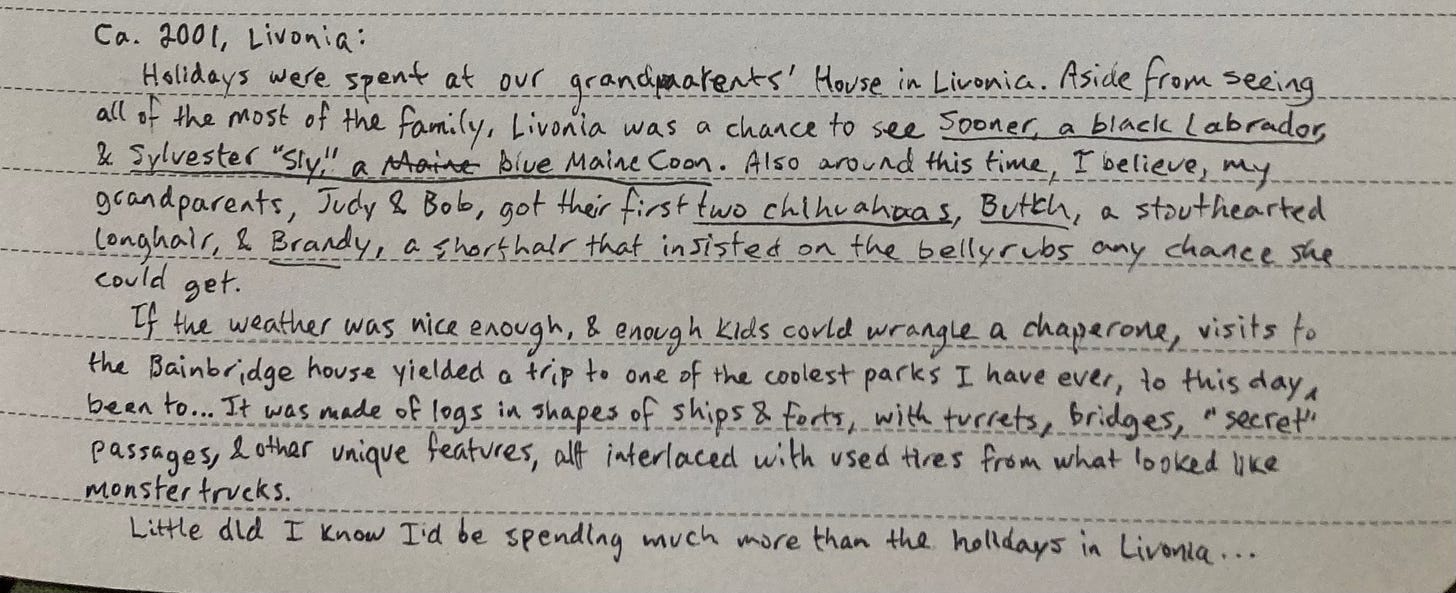 Ca. 2001, Livonia:
Holidays were spent at our grandparents' House in Livonia. Aside from seeing
all of the most of the family, Livonia was a chance to see Sooner, a black Labrador,
& Sylvester "Sly," a Maine blue Maine Coon. Also around this time, I believe, my
grandparents, Judy & Bob, got their first two chihuahuas, Butch, a stouthearted
longhair, & Brandy, a shorthair that insisted on the bellyrubs any chance she
could get.
If the weather was nice enough, & enough kids could wrangle a chaperone, visits to
the Bainbridge house yielded a trip to one of the coolest parks I have ever, to this day,
been to... It was made of logs in shapes of ships & forts, with turrets, bridges, "secret"
passages, & other unique features, all interlaced with used tires from what looked like
monster trucks.
Little did I know I'd be spending much more than the holidays in Livonia...